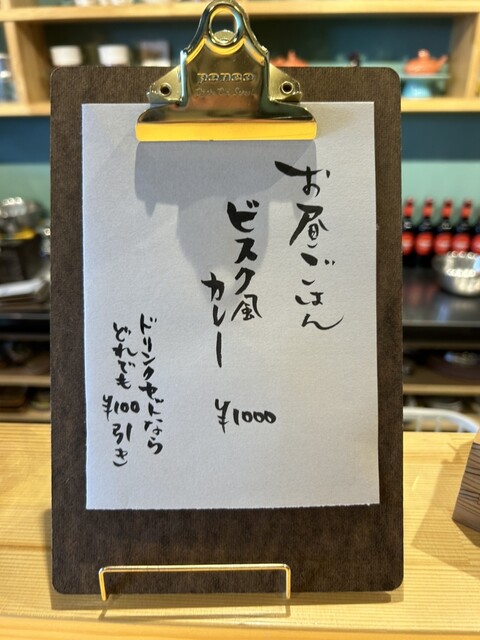 お昼ごはん
ビスク風
カレー
¥1000
ドリンクセットなら
どれでも
¥100引き